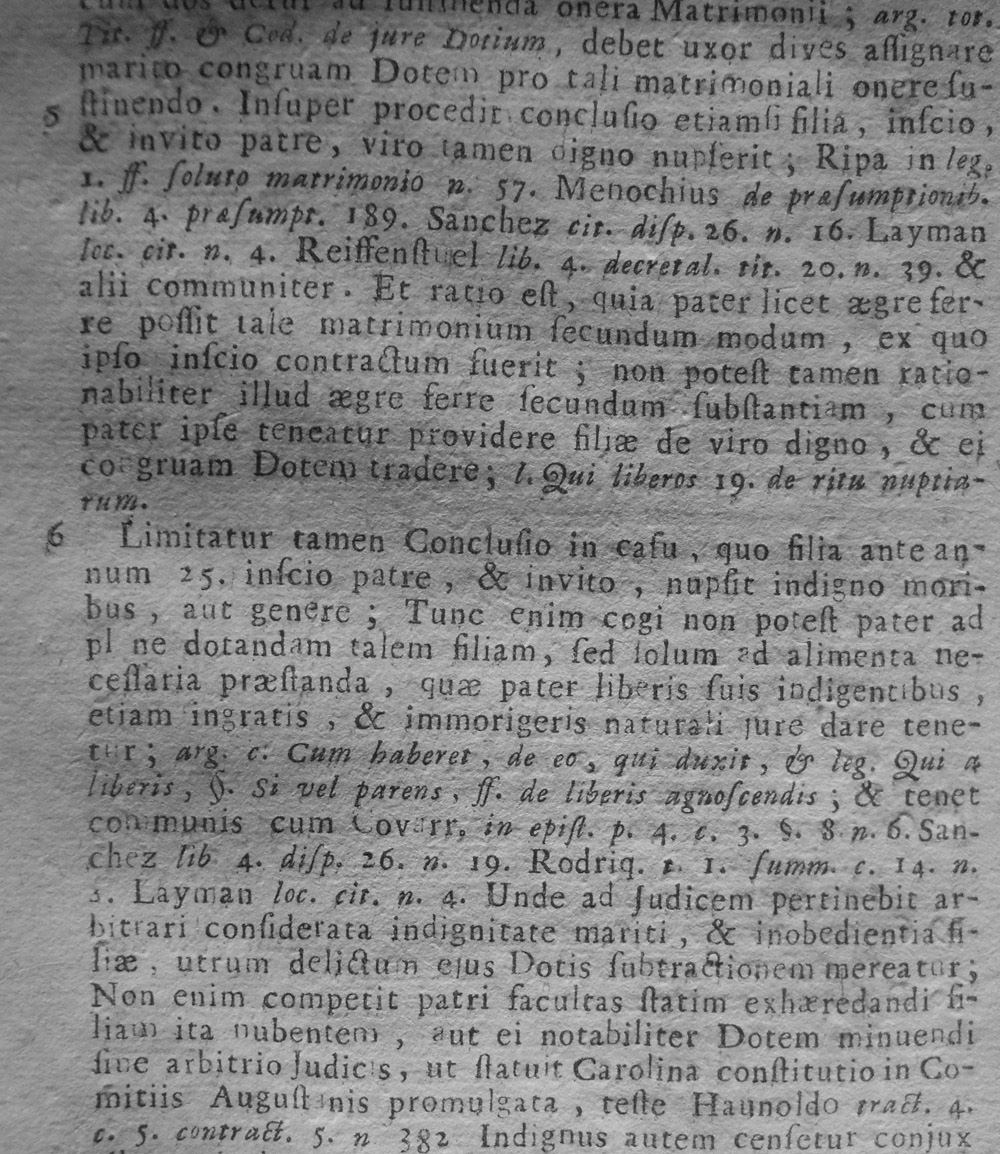 cum dos detur ad sustinenda onera Matrimonii ; arg. tot.
Tit. ff. & Cod. de jure Dotium, debet uxor dives aſſignare
marito congruam Dotem pro tali matrimoniali onere ſu-
5 ſtinendo. Inſuper procedit concluſio etiamſi filia, inſcio,
& invito patre, viro tamen digno nupſerit ; Ripa in leg.
1. ff. ſoluto matrimonio n. 57. Menochius de præſumptionib.
lib. 4. præſumpt. 189. Sanchez cit. diſp. 26. n. 16. Layman
loc. cit. n. 4. Reiffenſtuel lib. 4. decretal. tit. 20. n. 39. &
alii communiter. Et ratio eſt, quia pater licet ægre fer-
re poſſit tale matrimonium ſecundum modum, ex quo
ipſo inſcio contractum fuerit ; non poteſt tamen ratio-
nabiliter illud ægre ferre ſecundum ſubſtantiam, cum
pater ipſe teneatur providere filiæ de viro digno, & ei
congruam Dotem tradere; l. Qui liberos 19. de ritu nuptia-
rum.
6 Limitatur tamen Concluſio in caſu, quo filia ante an-
num 25. inſcio patre, & invito, nupſit indigno mori-
bus, aut genere ; Tunc enim cogi non poteſt pater ad
plene dotandam talem filiam, ſed ſolum ad alimenta ne-
ceſſaria præſtanda, quæ pater liberis ſuis indigentibus,
etiam ingratis, & immorigeris naturali jure dare tene-
tur; arg. c. Cum haberet, de eo, qui duxit, & leg. Qui a
liberis, §. Si vel parens, ff. de liberis agnoſcendis ; & tenet
communis cum Covarr. in epiſt. p. 4. c. 3. §. 8 n. 6. San-
chez lib 4. diſp. 26. n. 19. Rodriq. t. 1. ſumm. c. 14. n.
Layman loc. cit. n. 4. Unde ad Judicem pertinebit ar-
bitrari conſiderata indignitate mariti, & inobedientia fi-
liæ, utrum delictum ejus Dotis ſubtractionem mereatur;
Non enim competit patri facultas ſtatim exhæredandi fi-
liam ita nubentem, aut ei notabiliter Dotem minuendi
ſine arbitrio Judicis, ut ſtatuit Carolina conſtitutio in Co-
mitiis Auguſtanis promulgata, teſte Haunoldo tract. 4.
c. 5. contract. 5. n 382 Indignus autem cenſetur conjux